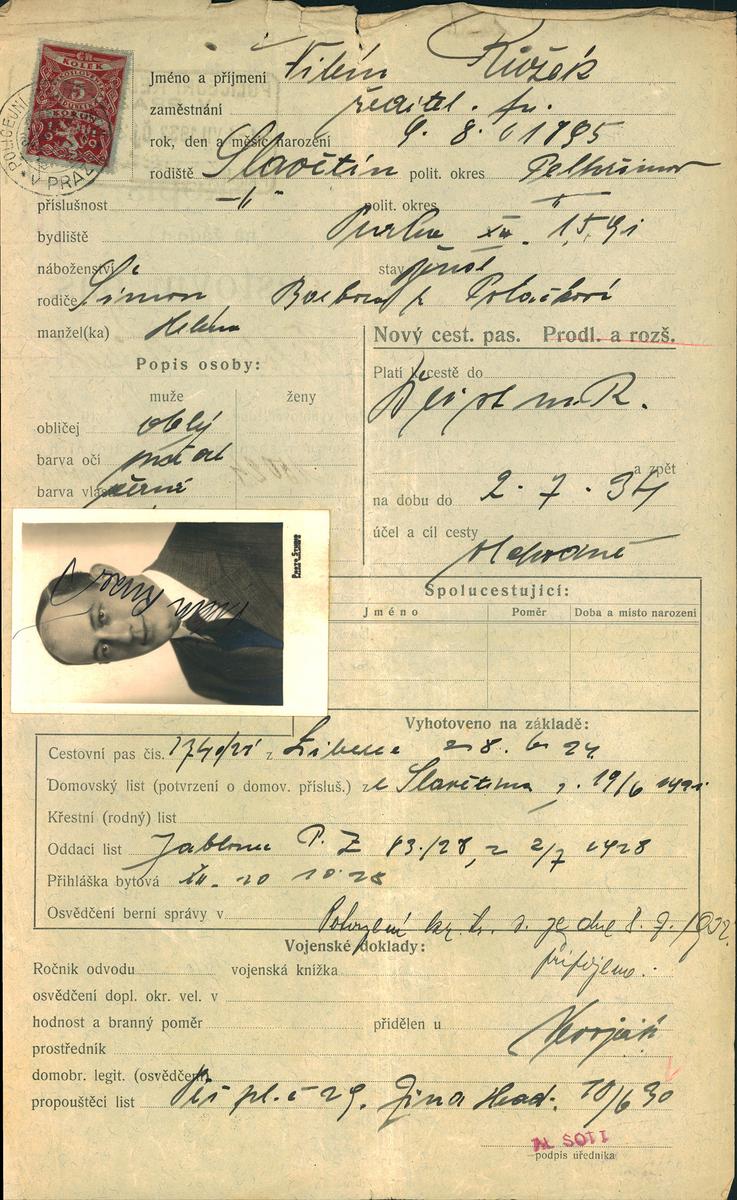 ČR
KOLEK
5
KORUN
V PRAZE
Jméno a příjmení Vilém Růžek
zaměstnání ředitel. fy.
rok, den a měsíc narození 9. 8. 1895
rodiště Slavětín polit. okres Pelhřimov
příslušnost -"- polit. okres -"-
bydliště Praha XII. 1591
náboženství stav
rodiče Šimon Barbora r. Poláčková
manžel(ka) Helena
Nový cest. pas. Prodl. a rozš.
Popis osoby:
muže ženy
obličej oblý
barva očí
barva vlasů černé
Platí k cestě do
a zpět
na dobu do 2. 7. 34
účel a cíl cesty obchodně
Photo Strauss
Spolucestující:
Jméno Poměr Doba a místo narození
Vyhotoveno na základě:
Cestovní pas čís. z Liberec 28. 6. 24
Domovský list (potvrzení o domov. přísluš.) z Slavětína z. 19/6 1921
Křestní (rodný) list
Oddací list Jablonec P. Z 83/28, z 2/7 1928
Přihláška bytová XII. 20 10.28
Osvědčení berní správy v Potvrzení ze dne 8. 7. 1932
připojeno.
Vojenské doklady:
Ročník odvodu vojenská knížka
osvědčení dopl. okr. vel. v
hodnost a branný poměr přidělen u
prostředník
domobr. legit. (osvědčení)
propouštěcí list pl. č 29. 10/6 30
podpis úředníka